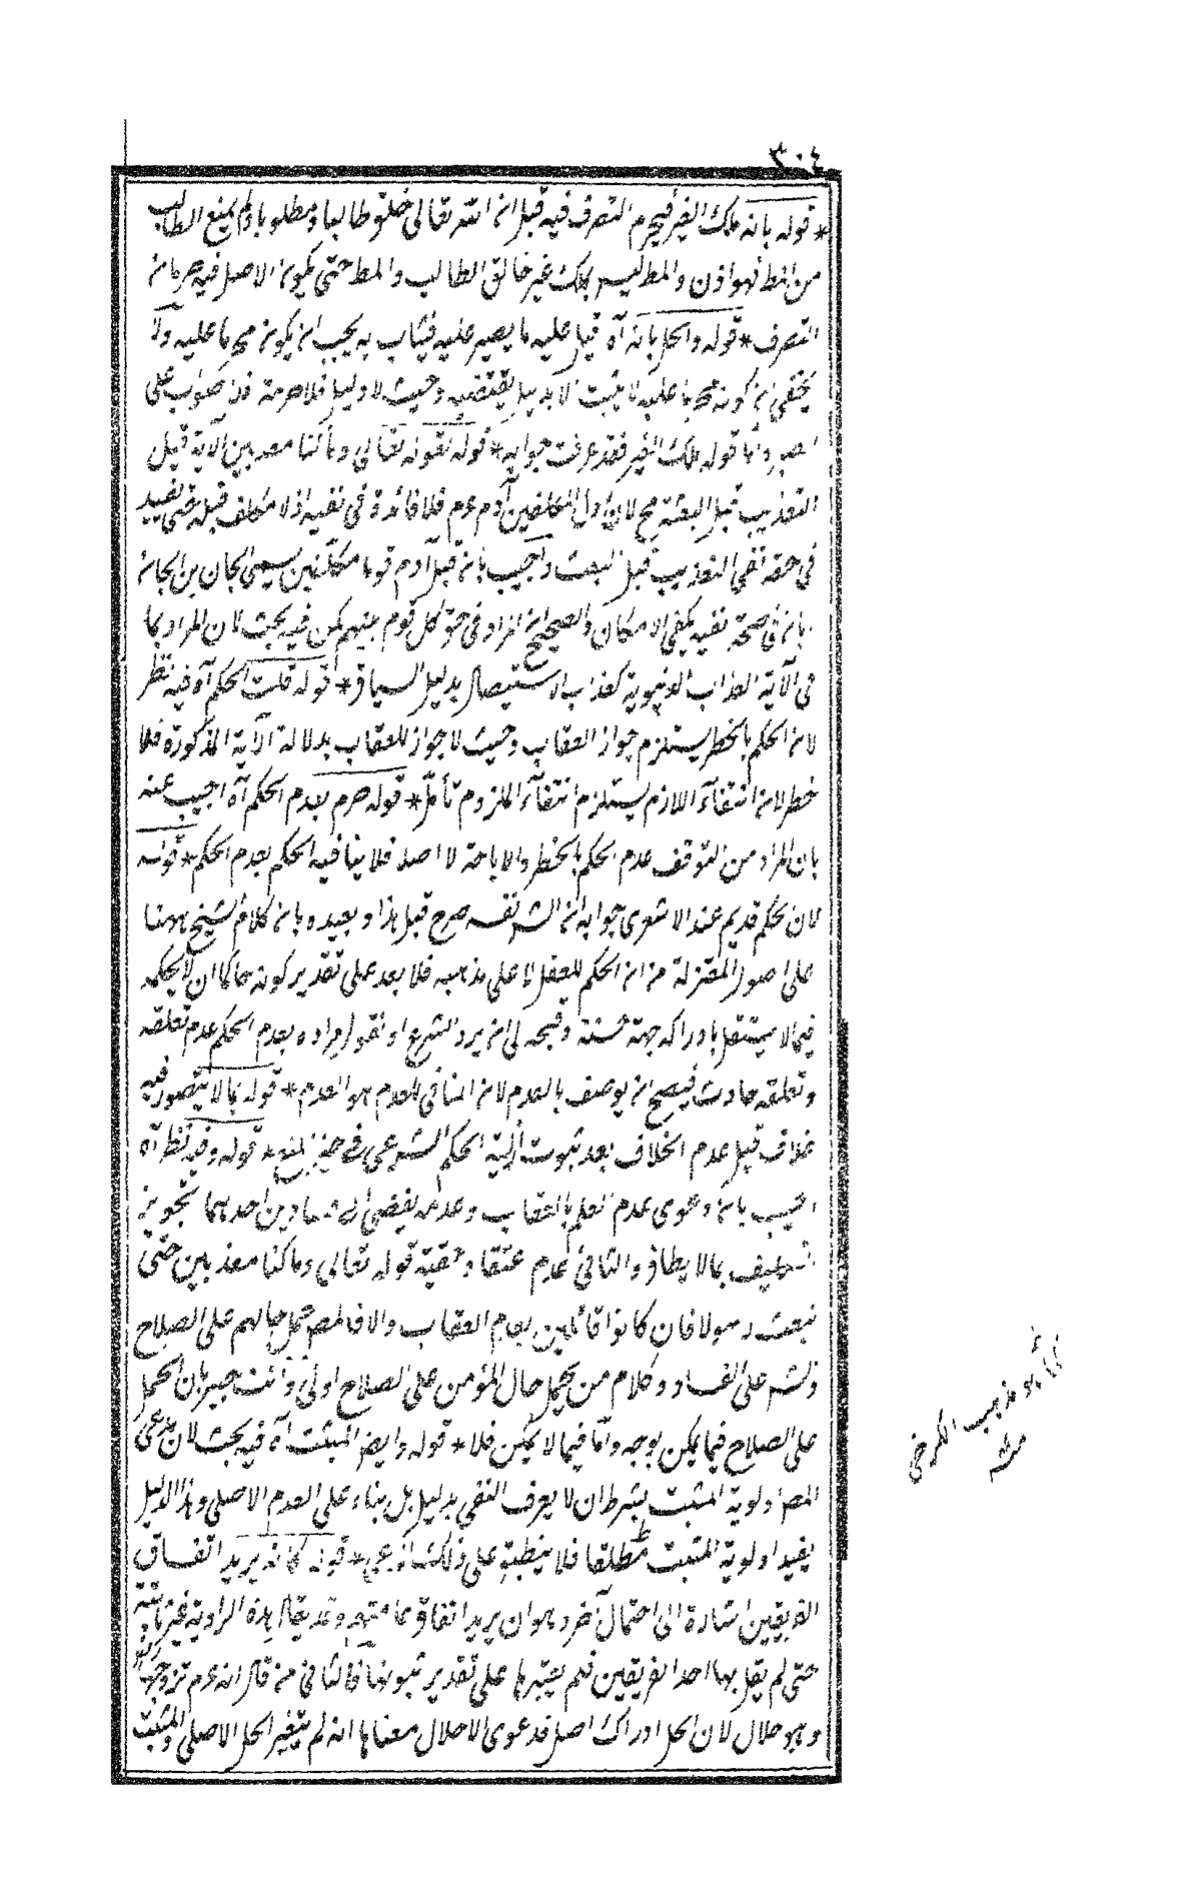 ٣٠٤
* قوله بانه ملك الغير فيحرم التصرف فيه قيل ان الله تعالى خلق طالبا ومطلوبا ولم يمنع الطالب
من المط فهو اذن والمط ليس بملك غير خالق الطالب والمط حتى يكون الاصل فيه حرمان
التصرف * قوله والحل بانه آه قيل عليه ما يصير عليه فيثاب به يجب ان يكون محرما عليه ولا
يخفى ان كونه محرما عليه لا يثبت الا بدليل يقتضيه وحيث لا دليل فلا حرمة على
واما قوله ملك الغير فقد عرفت جوابه * قوله لقوله تعالى وما كنا معذبين الآية قيل
التعذيب قبل البعثة مح لان اول المكلفين آدم عم فلا فائدة في نفيه اذ لا مكلف قبله حتى يفيد
في حقه نفي التعذيب قبل البعث واجيب بان قبل آدم قوما مكلفين يسمى الجان بن الجان
بان في صحة نفيه يكفي الامكان والصحيح ان المراد في حق كل قوم بينهم لكن فيه بحث لان المراد بما
في الآية العذاب الدنيوية كعذاب الاستيصال بدليل السياق * قوله قلت الحكم آه فيه نظر
لان الحكم بالخطر يستلزم جواز العقاب وحيث لا جواز للعقاب بدلالة الآية المذكورة فلا
خطر لان انتفاء اللازم يستلزم انتفاء الملزوم تأمل * قوله حرم بعدم الحكم آه اجيب عنه
بان المراد من التوقف عدم الحكم بالخطر والاباحة لا اصلا فلا ينافيه الحكم بعدم الحكم * قوله
لان يحكم قديم عند الاشعرى جوابه ان الش نفسه صرح قبل هذا وبعيده بان كلام الشيخ ههنا
على اصول المعتزلة من ان الحكم للعقل لا على مذهبه فلا بعد على تقدير كونه حاكما ان لا يحكم
فيما لا يستقل بادراكه جهة حسنة وقبحه الى ان يرد الشرع او نقول مراده بعدم الحكم عدم تعلقه
وتعلقه حادث فيصح ان يوصف بالعدم لان المنافى للعدم هو العدم * قوله بما لا يتصور فيه
خلاف قيل عدم الخلاف بعد ثبوت ازلية الحكم الشرعى في حيز المنع * قوله وفيه نظر آه
اجيب بان دعوى عدم العلم بالعقاب وعدمه يفضى الى فسادين احدهما تجويز
التكليف بما لا يطاق والثانى عدم اعتقاد حقية قوله تعالى وما كنا معذبين حتى
نبعث رسولا فان كانوا قائلين بعدم العقاب والا فالمص حمل حالهم على الصلاح
والش على الفساد وكلام من يحمل حال المؤمن على الصلاح اولى وانت خبير بان الحمل
على الصلاح فيما يمكن بوجه واما فيما لا يمكن فلا * قوله وايض المثبت آه فيه بحث لان مدعى
المص اولوية المثبت بشرط ان لا يعرف النفى بدليل بل بناء على العدم الاصلى وهذا الدليل
يفيد اولوية المثبت مطلقا فلا ينطبق على ذلك * قوله كانه يريد اتفاق
الفريقين اشارة الى احتمال آخر وهو ان يريد اتفاق وقد يقال هذه الراوية غير ثابتة
حتى لم يقل بها احد الفريقين فهم يعتبرها على تقدير ثبوتها فالثانى من قال انه عم تزوجها
وهو حلال لان الحل ادراك اصل فدعوى الاحلال معناها انه لم يتغير الحل الاصلى والمثبت
هو مذهب الكرخى
منه